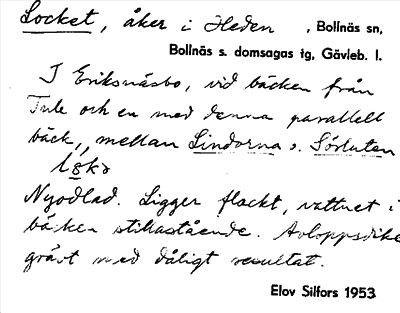 Locket, åker i Heden , Bollnäs sn,
Bollnäs s. domsagas tg, Gävleb. l.
I Eriksnäsbo, vid bäcken från
Tule och en med denna parallell
bäck, mellan Lindorna o. Sörluten
Nyodlad. Ligger flackt, vattnet i
bäcken stillastående. Avloppsdike
grävt med dåligt resultat.
Elov Silfors 1953